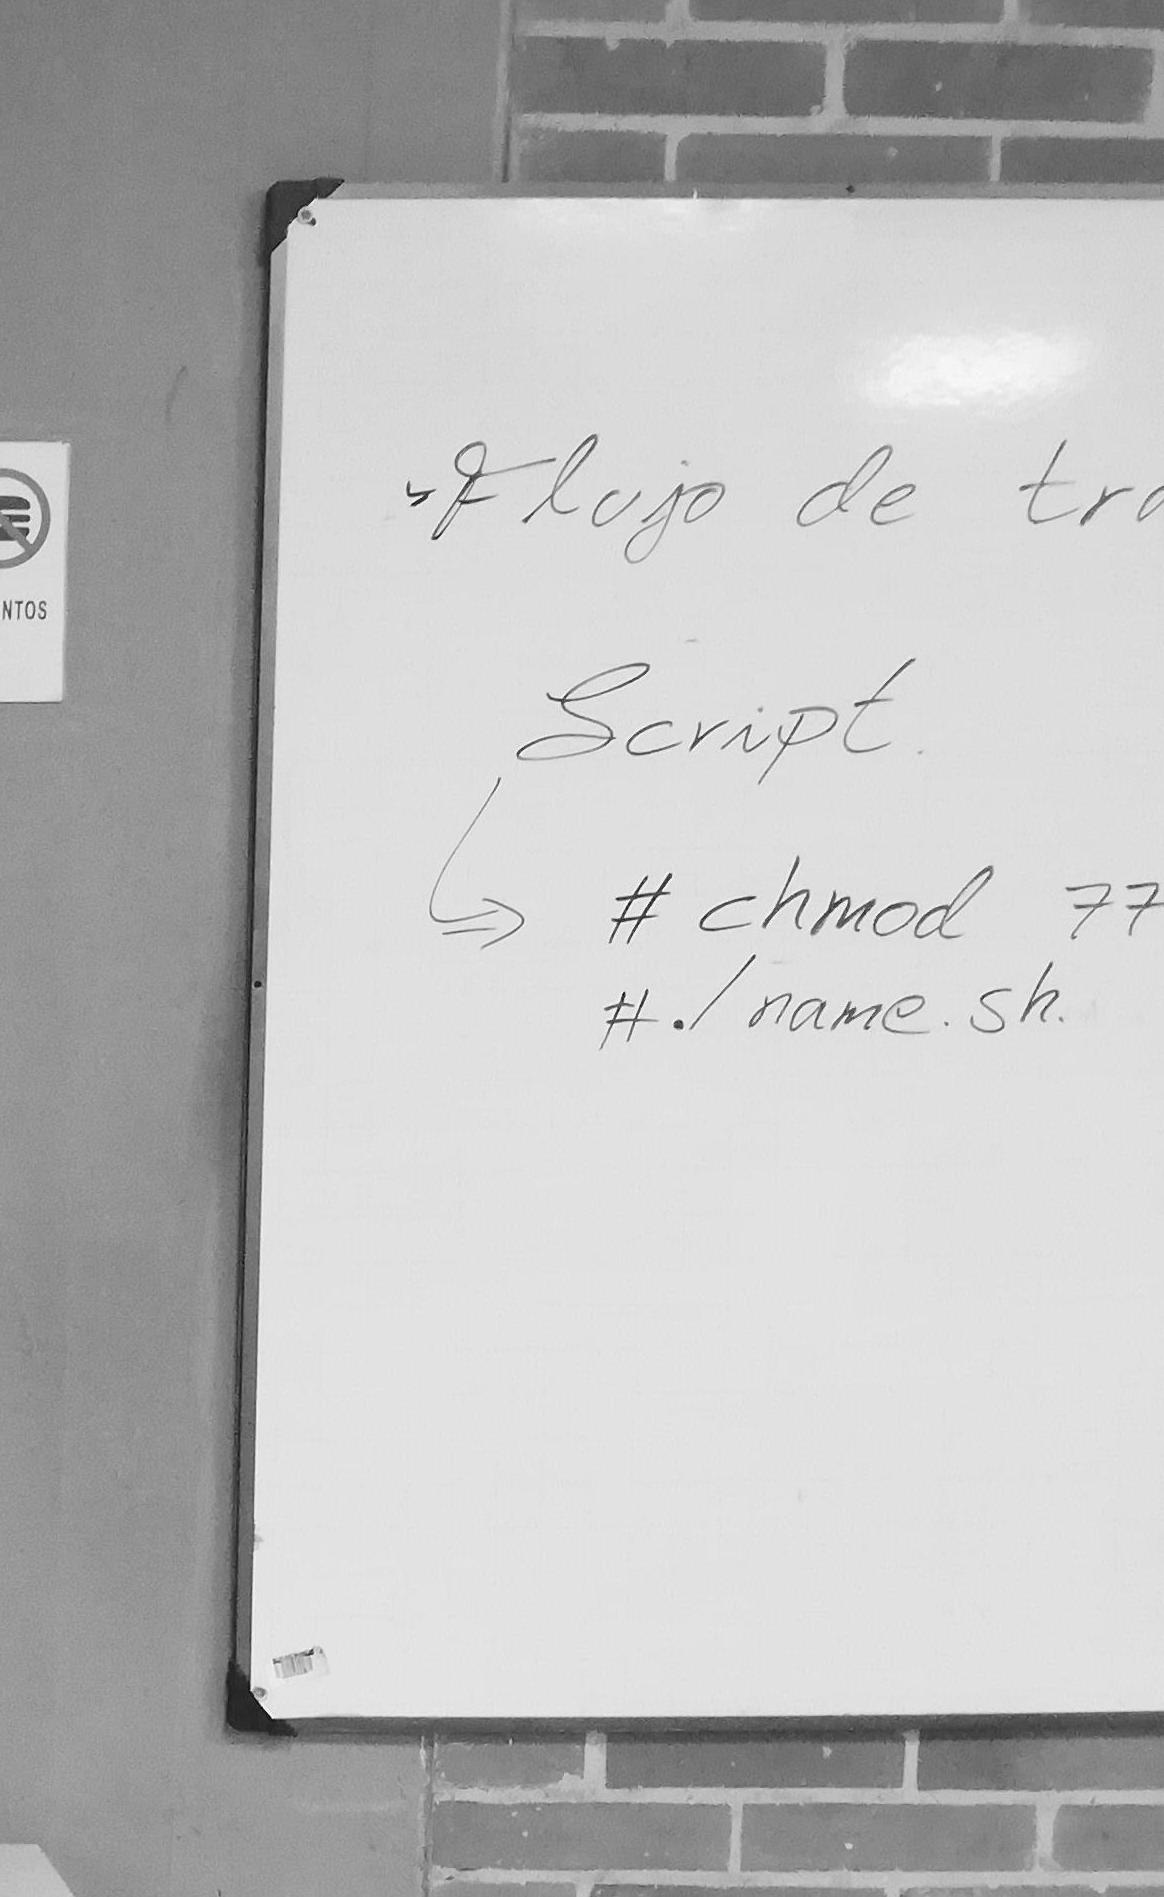 NTOS
Flujo de tra
Script.
# chmod 77
# ./name.sh.